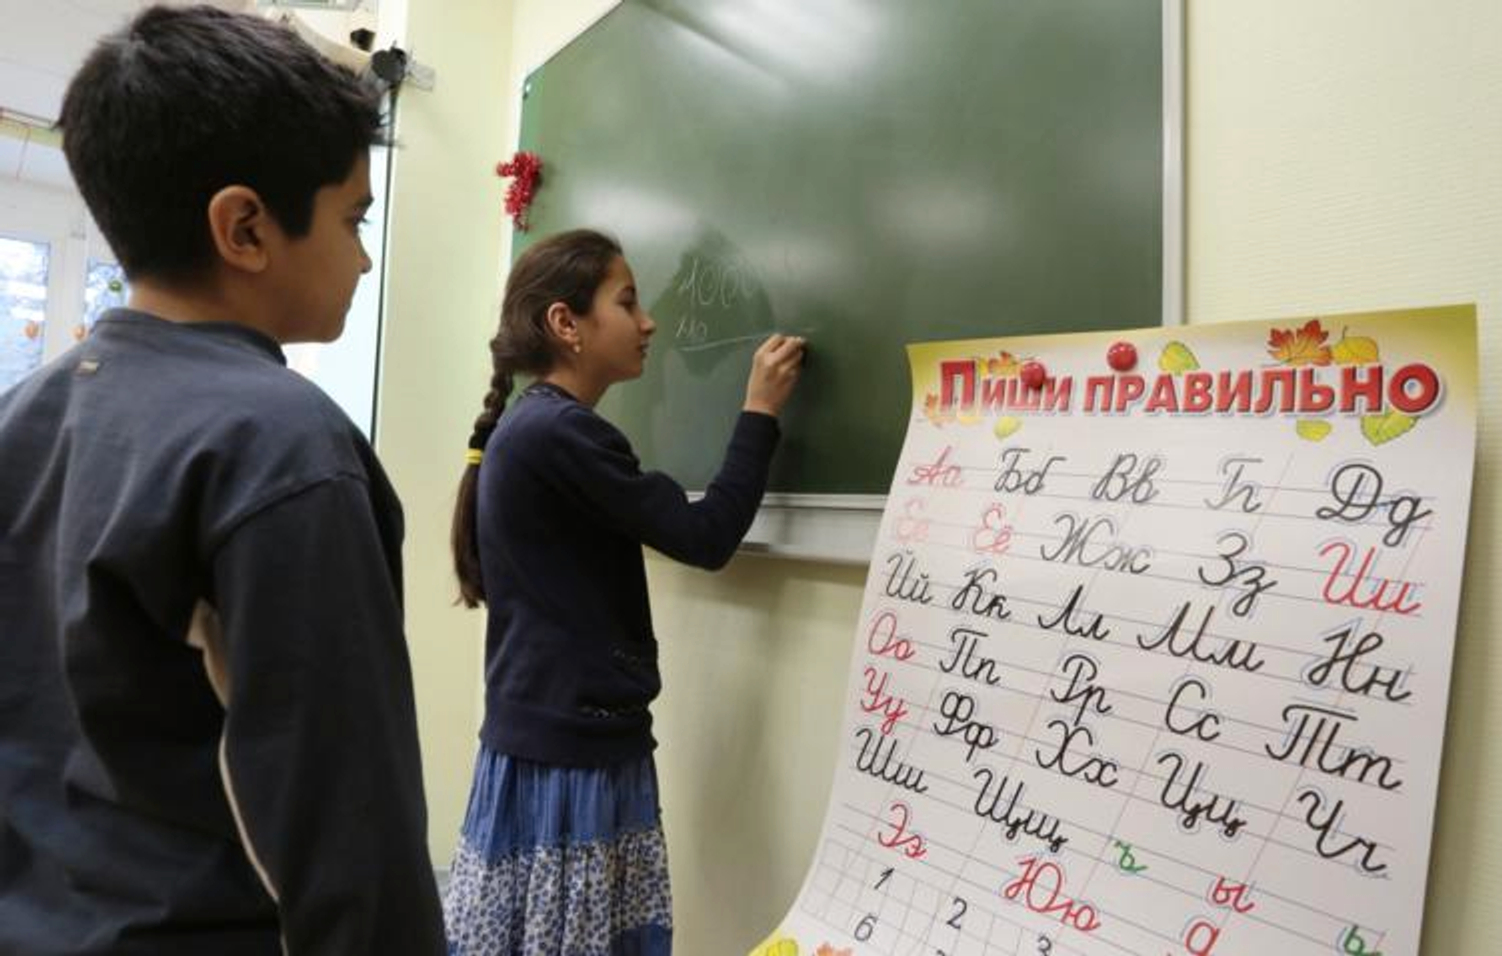 1000
110
Пиши правильно
Аа Бб Вв Гг Дд
Ее Ёё Жж Зз Ии
Йй Кк Лл Мм Нн
Оо Пп Рр Сс Тт
Уу Фф Хх Цц Чч
Шш Щщ ъ ы ь
Ээ Юю
1 2 3
6